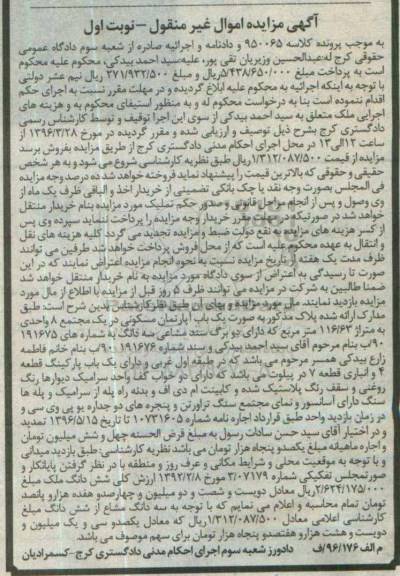 آگهی مزایده اموال غیر منقول – نوبت اول
به موجب پرونده کلاسه ۹۵۰۰۶۵ و دادنامه و اجرائیه صادره از شعبه سوم دادگاه عمومی
حقوقی کرج له:عبدالحسین وزیریان تقی پور، علیه:سید احمد بیدکی، محکوم علیه محکوم
است به پرداخت مبلغ ۵/۴۳۸/۶۵۰/۰۰۰ریال و مبلغ ۲۷۱/۹۳۲/۵۰۰ ریال نیم عشر دولتی
با توجه به اینکه اجرائیه به محکوم علیه ابلاغ گردیده و در مهلت مقرر نسبت به اجرای حکم
اقدام ننموده است بنا به درخواست محکوم له و به منظور استیفای محکوم به و هزینه های
اجرایی ملک متعلق به سید احمد بیدکی از سوی این اجرا توقیف و توسط کارشناس رسمی
دادگستری کرج بشرح ذیل توصیف و ارزیابی شده و مقرر گردیده در مورخ ۱۳۹۶/۳/۲۸ از
ساعت ۱۲الی۱۳ در محل اجرای احکام مدنی دادگستری کرج از طریق مزایده بفروش برسد
مزایده از قیمت ۱/۳۱۲/۰۸۷/۵۰۰ریال طبق نظریه کارشناسی شروع می شود و به هر شخص
حقیقی و حقوقی که بالاترین قیمت را پیشنهاد نماید فروخته خواهد شد ده درصد وجه مزایده
فی المجلس بصورت وجه نقد یا چک بانکی تضمینی از خریدار اخذ و الباقی ظرف یک ماه از
وی وصول و پس از انجام مراحل قانونی و صدور حکم تملیک مورد مزایده بنام خریدار منتقل
خواهد شد در صورتیکه در موعد مقرر خریدار وجه مزایده را پرداخت ننماید سپرده وی پس
از کسر هزینه های مزایده به نفع دولت ضبط و مزایده تجدید می گردد کلیه هزینه های نقل
و انتقال به عهده محکوم علیه است که از محل فروش پرداخت خواهد شد طرفین می توانند
ظرف مدت یک هفته از تاریخ مزایده نسبت به نحوه انجام مزایده اعتراض نمایند که در این
صورت تا رسیدگی به اعتراض از سوی دادگاه مورد مزایده به نام خریدار منتقل خواهد شد
ضمنا طالبین به شرکت در مزایده می توانند ظرف ۵ روز قبل از مزایده با اطلاع از مال مورد
مزایده بازدید نمایند. مال مورد مزایده و بهای آن طبق نظر کارشناس بدین شرح است: طبق
مدارک ارائه شده پلاک مذکور به صورت یک باب آپارتمان مسکونی در یک مجتمع ۸ واحدی
به متراژ ۱۱۶/۶۳ متر مربع که دارای دو برگ سند مشاعی سه دانگ به شماره های ۱۹۱۶۷۵
۹۰/ب بنام مرحوم آقای سید احمد بیدکی و سند شماره ۱۹۱۶۷۶ ۹۰/ب بنام خانم فاطمه
زارع بیدکی همسر مرحوم می باشد که در طبقه اول غربی و دارای یک باب پارکینگ قطعه
۴ و انباری قطعه ۷ در پیلوت می باشد که دارای دو خواب کف واحد سرامیک دیوارها رنگ
روغنی و سقف رنگ پلاستیک شده و کابینت ام دی اف و بدنه راه پله از سرامیک و پله ها
سنگ دارای آسانسور و نمای مجتمع سنگ تراورتن و پنجره های دو جداره یو پی وی سی و
در زمان بازدید واحد طبق قرارداد اجاره نامه شماره ۱۰۷۳۱۶۰۵ تا تاریخ ۱۳۹۶/۵/۱۵ تمدید
و در اختیار آقای سید حسن سادات رسول به مبلغ قرض الحسنه چهل و شش میلیون تومان
و اجاره ماهیانه مبلغ یکصدو پنجاه هزار تومان می باشد نظریه کارشناسی: طبق بازدید میدانی
و با توجه به موقعیت محلی و شرایط مکانی و عرف روز و منطقه با در نظر گرفتن پایانکار و
صورتمجلس تفکیکی شماره ۳/۰۷۱۷۹ مورخ ۱۳۹۲/۲/۸ ارزش کلی شش دانگ ملک مبلغ
۲/۶۲۴/۱۷۵/۰۰۰ریال معادل دویست و شصت و دو میلیون و چهارصدو هفده هزارو پانصد
تومان تمام محاسبه و اعلام می نمایم که با توجه به سه دانگ مشاع از شش دانگ مبلغ
کارشناسی اعلامی معادل ۱/۳۱۲/۰۸۷/۵۰۰ریال که معادل یکصدو سی و یک میلیون و
دویست و هشت هزارو هفتصدو پنجاه هزار تومان برای سهم موصوف می باشد.
م الف ۹۶/۱۷۶/ف دادورز شعبه سوم اجرای احکام مدنی دادگستری کرج-کسمرادیان